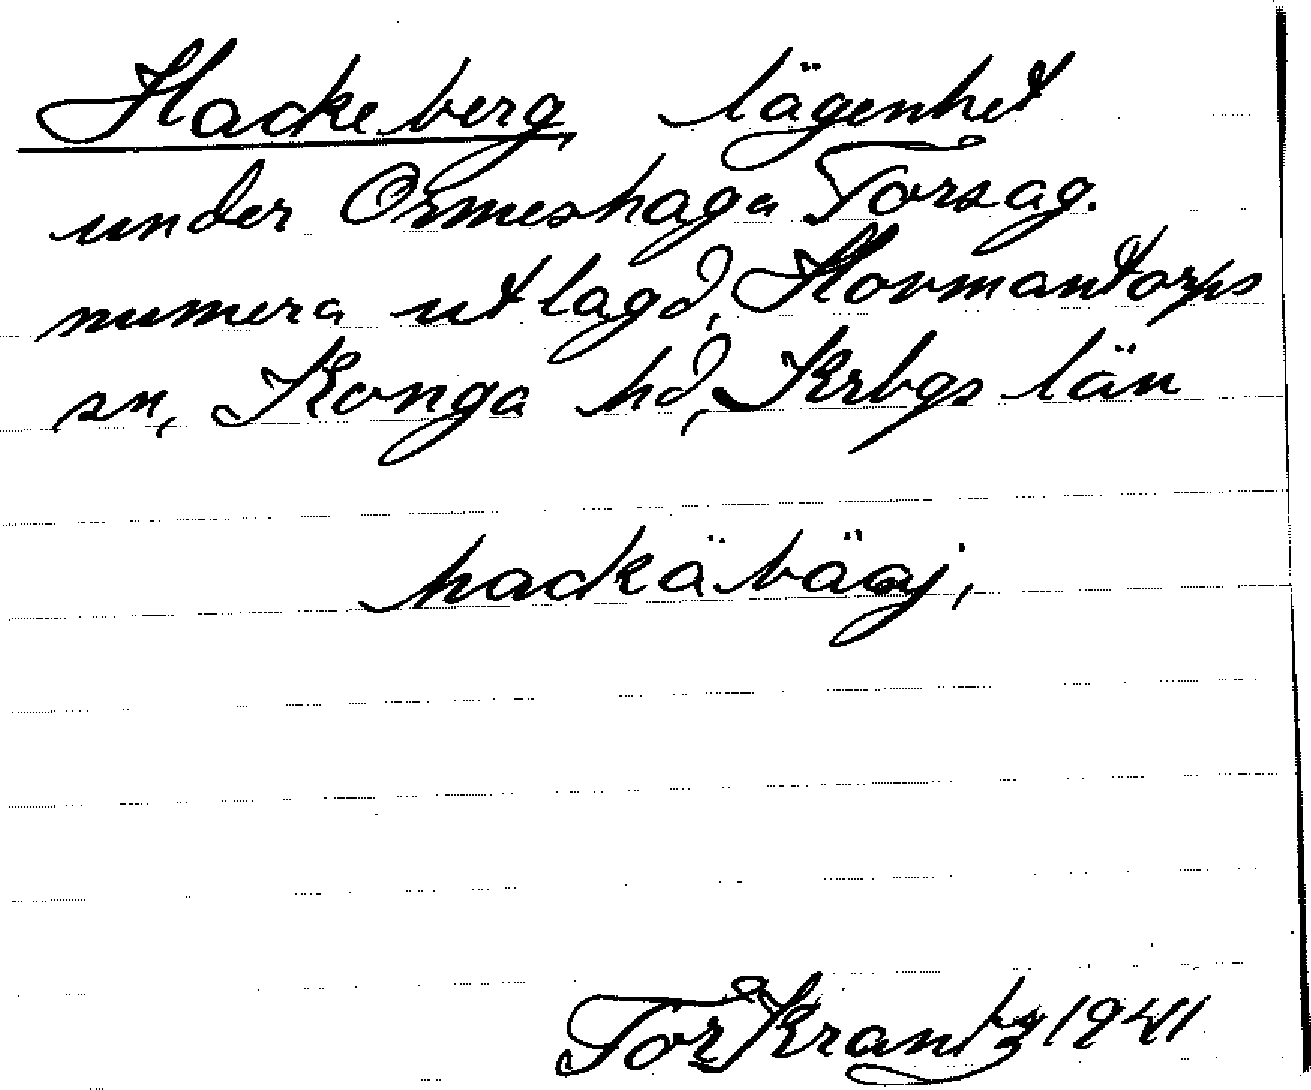 Hackeberg, lägenhet
under Ormeshaga Torsag.
numera utlagd, Hovmantorps
sn, Konga hd, Krbgs län
hackäbäaj,
Tor Krantz 1941